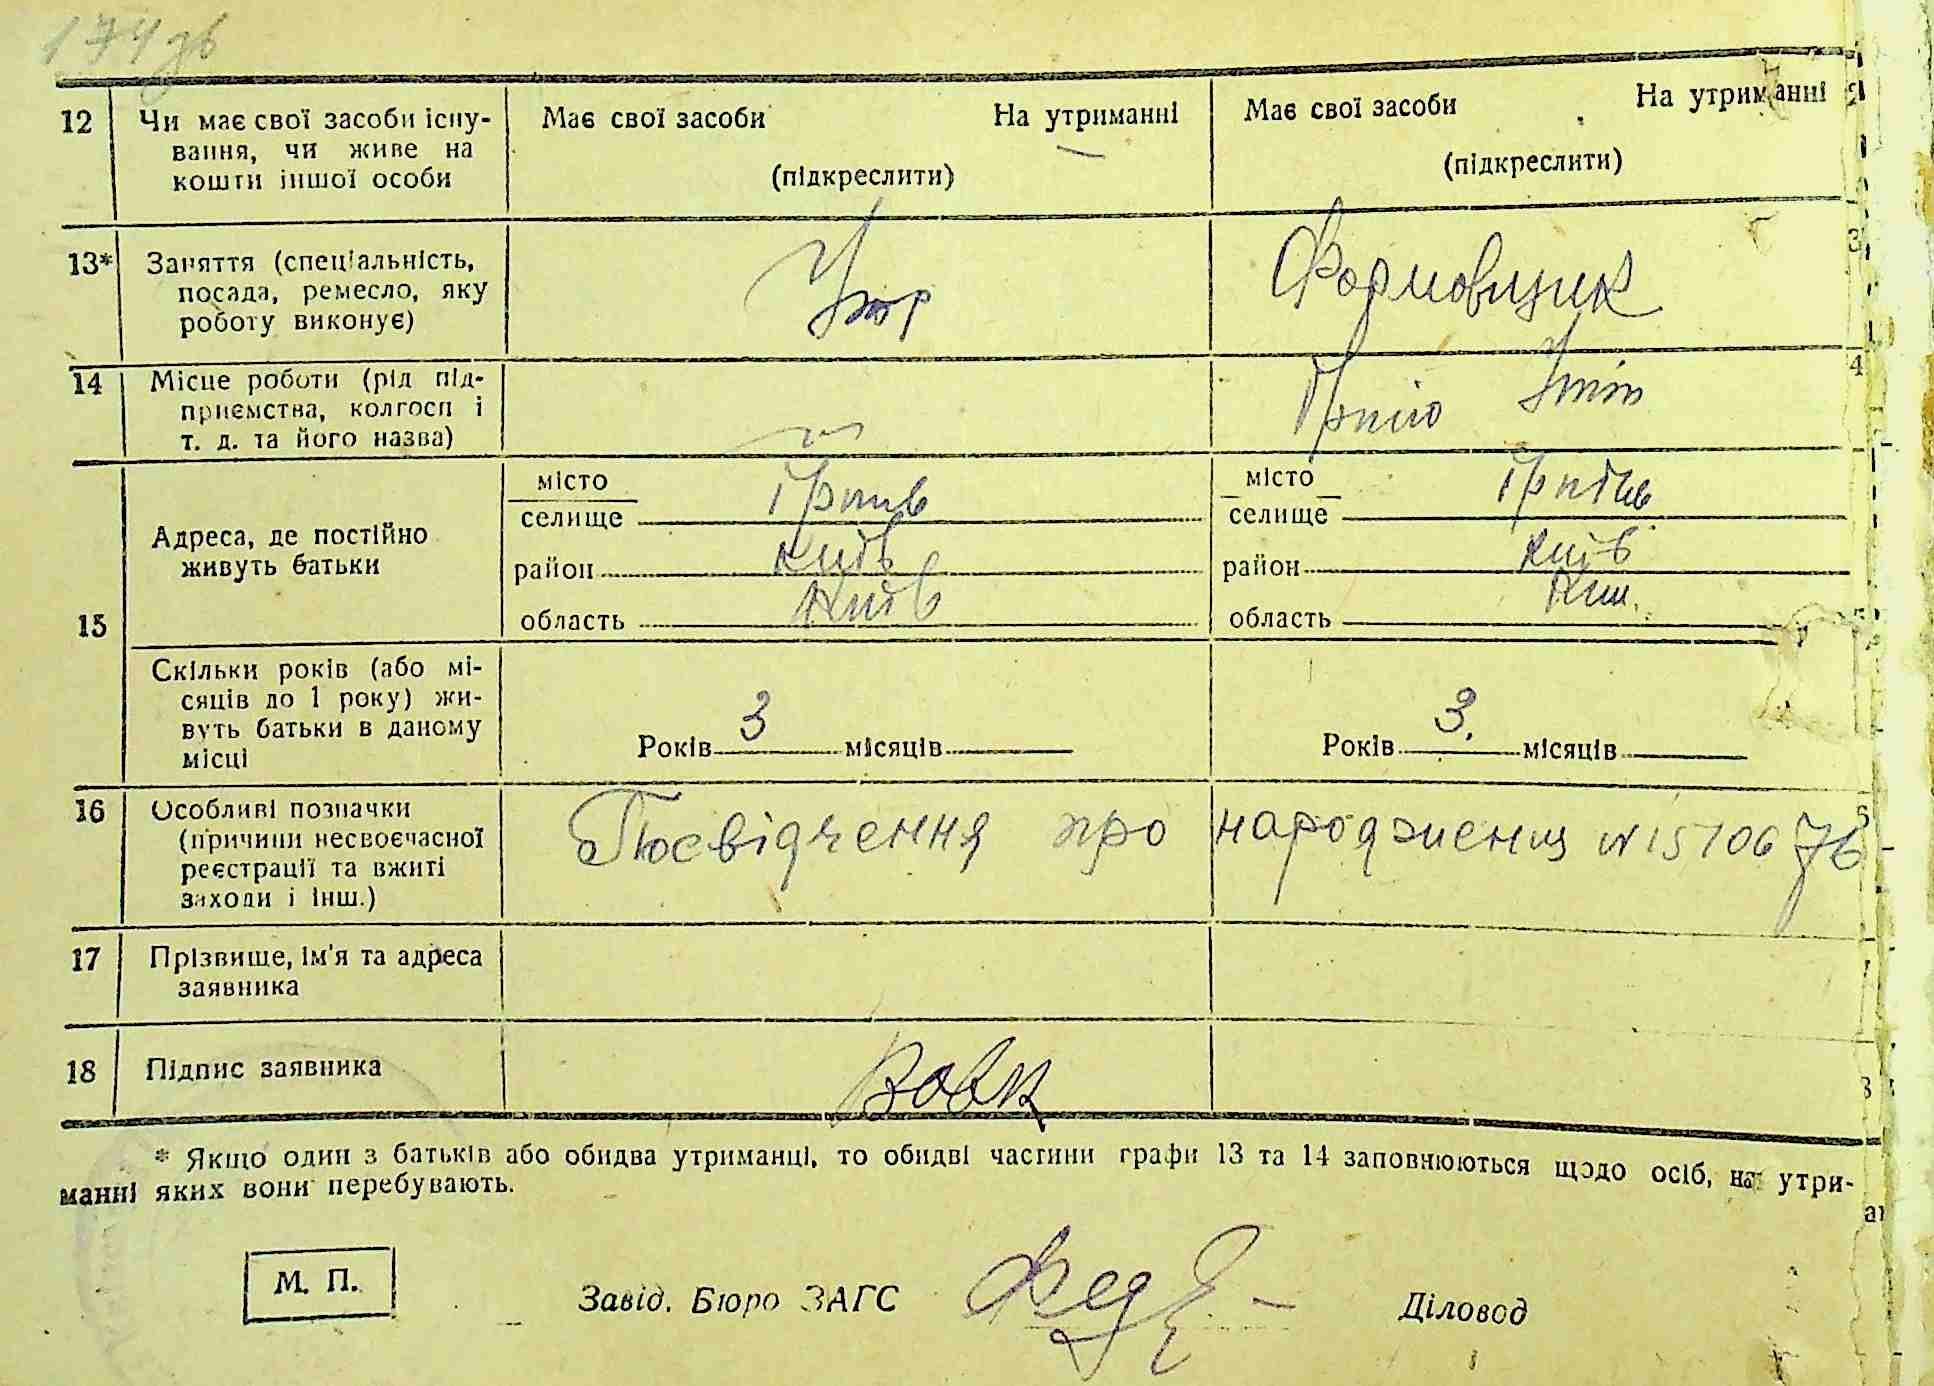 174 зв
12 Чи має свої засоби існу- Має свої засоби На утриманні Має свої засоби На утриманні
вання, чи живе на
кошти іншої особи (підкреслити) (підкреслити)
13* Заняття (спеціальність, Утр Формовщик
посада, ремесло, яку
роботу виконує)
14 Місце роботи (рід під-
приємства, колгосп і
т. д. та його назва)
місто місто
селище селище
Адреса, де постійно
живуть батьки
район Київ район Київ
область Київ область Київ.
15
Скільки років (або мі-
сяців до 1 року) жи-
вуть батьки в даному
місці
Років 3 місяців Років 3. місяців
16 Особливі позначки
(причини несвоєчасної
реєстрації та вжиті
заходи і інш.)
Посвідчення про народження N 1510676
17 Прізвище, ім'я та адреса
заявника
18 Підпис заявника Вовк
* Якщо один з батьків або обидва утриманці, то обидві частини графи 13 та 14 заповнюються щодо осіб, на утри-
манні яких вони перебувають.
М. П. Завід. Бюро ЗАГС Діловод